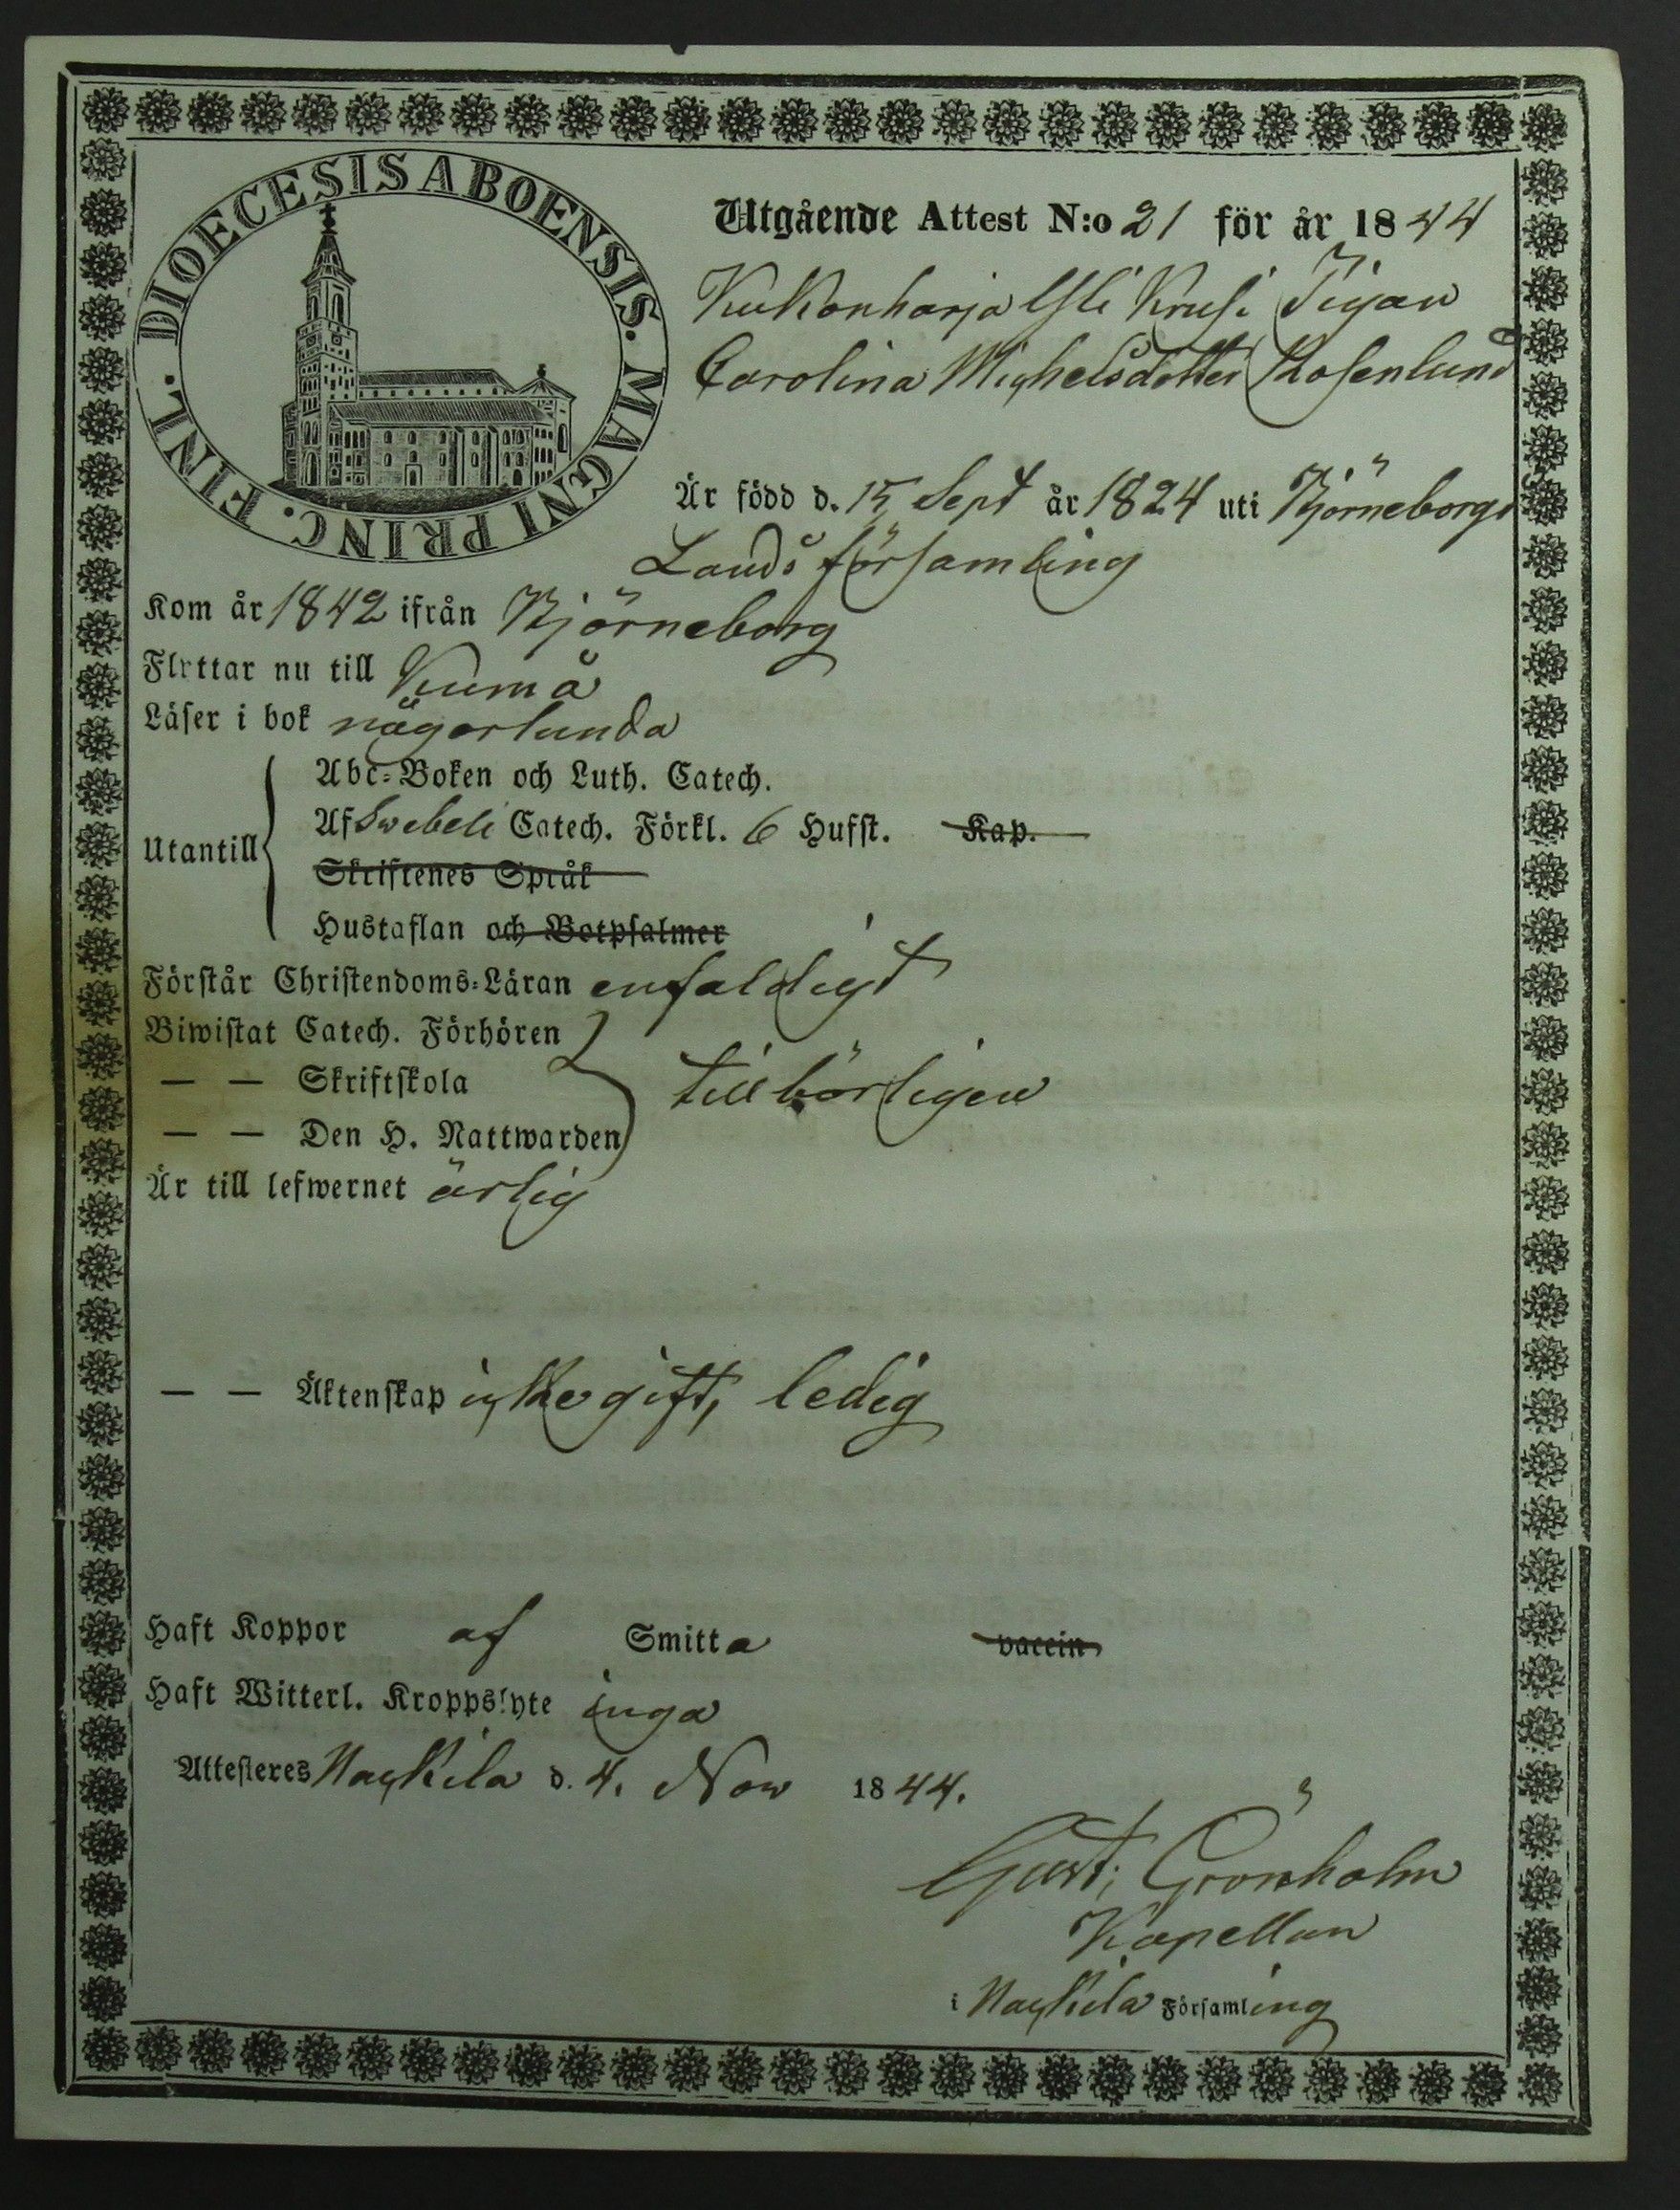 DIOECESIS ABOENSIS. MAGNI PRINC. FINL.
Utgående Attest N:o 21 för år 1844
Kukonharja Ysli Krusi Pigan
Carolina Michelsdotter Rosenlund
Är född d. 15 Sept år 1824 uti Björneborgs
Lands församling
Kom år 1842 ifrån Björneborg
Flyttar nu till Kumå
Läser i bok någorlunda
Utantill
Abc-Boken och Luth. Catech.
Af Swebeli Catech. Förkl. 6 Hufst. Kap.
Skriftenes Språk
Hustaflan och Botpsalmer
Förstår Christendoms-Läran enfaldigt
Biwistat Catech. Förhören
— — Skriftskola tillbörligen
— — Den H. Nattwarden
Är till lefwernet ärlig
— — Äktenskap icke gift, ledig
Haft Koppor af Smitta vaccin
Haft Witterl. Kroppslyte inga
Attesteres Nackila d. 4. Nov 1844.
Gust. Grönholm
Kapellan
i Nackila Församling